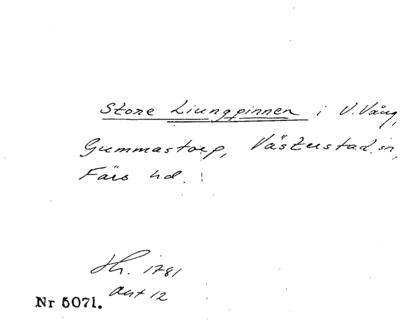 Store Liungpinnen i V.Vång,
Gummastorp, Västerstad.sn,
Färs hd.
Sk. 1781
akt 12
Nr 5071.